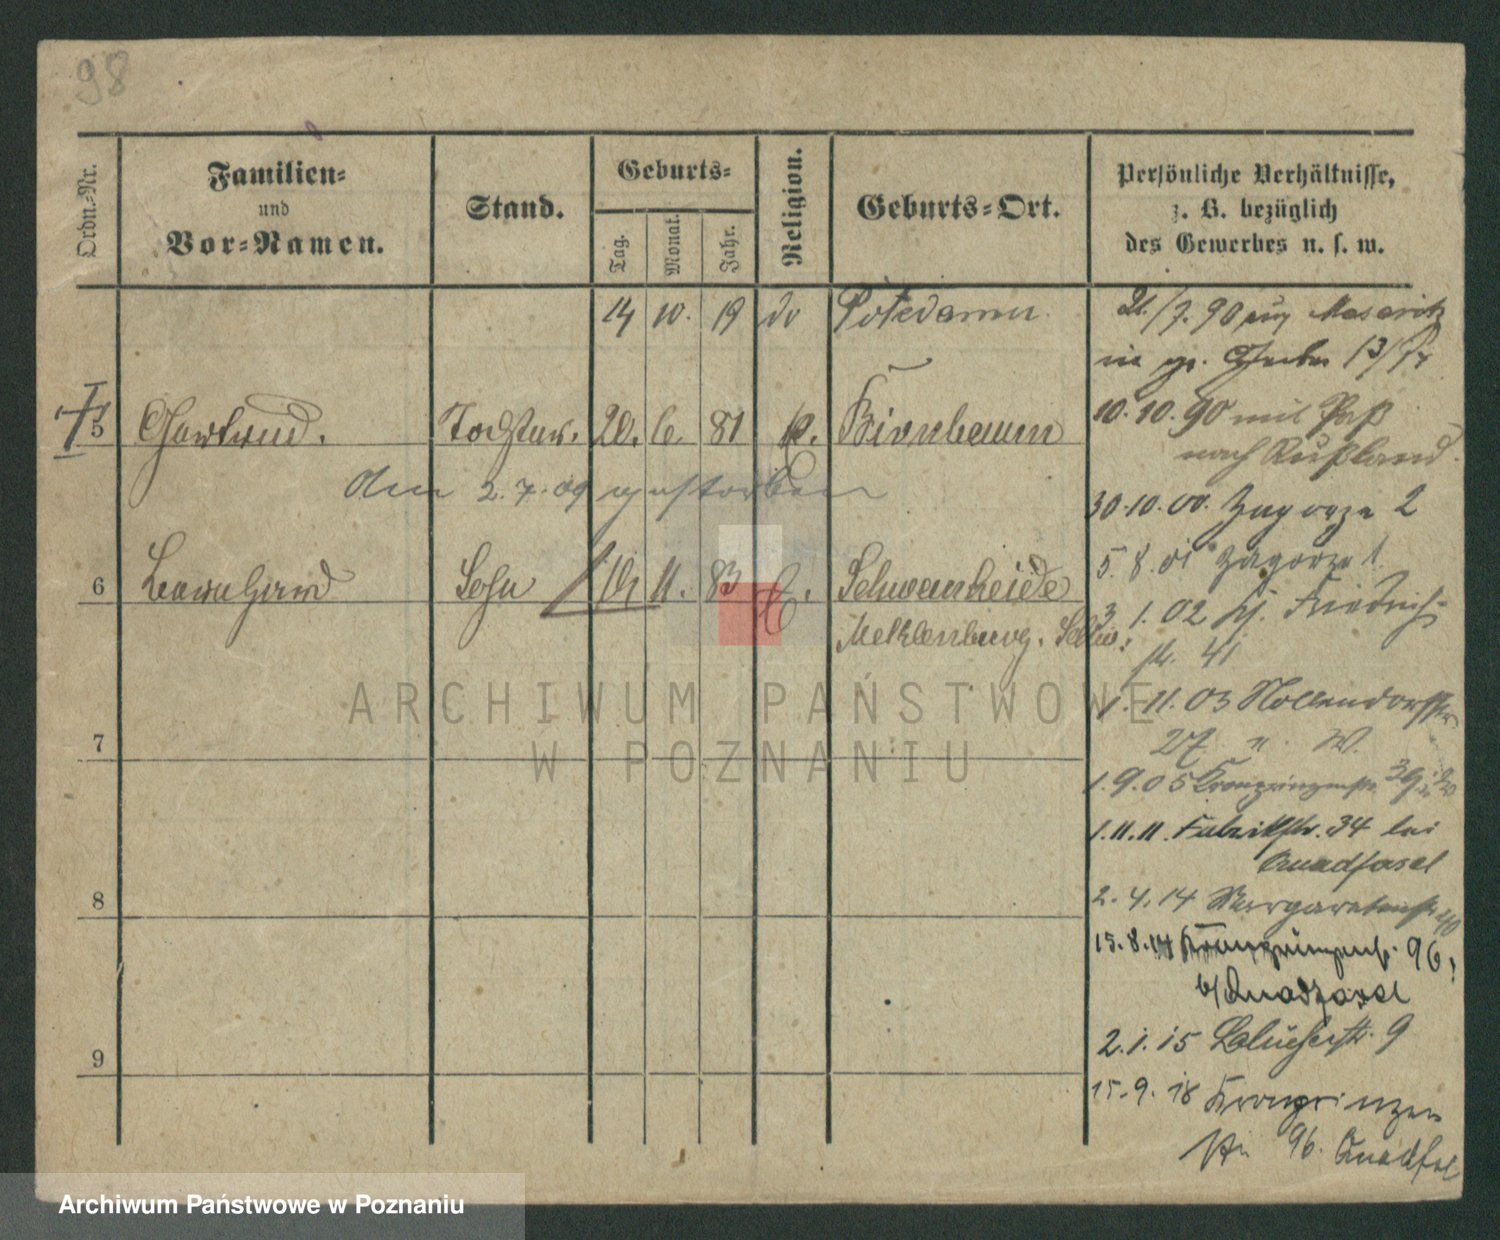 98
Ordn.-Nr.
Familien-
und
Vor-Namen.
Stand.
Geburts-
Tag.
Monat.
Jahr.
Religion.
Geburts-Ort.
Persönliche Verhältnisse,
z. B. bezüglich
des Gewerbes u. s. w.
14 10. 19 do Potsdamm
21./7. 90 Meseritz
13/
† 5 Gertrud. Tochter. 20. 6. 81 Birnbaum
10. 10. 90 mit Paß
nach Rußland.
den 2. 7. 09 gestorben
30. 10. 00. Zagorze 2
5. 8. 01 Zagorze 1.
6 Bernhard Sohn 11. 83 Schwanheide
Meklenburg. Schw.
3. 1. 02 Friedrich-
str. 41
1. 11. 03 Hollendorffstr
27. n. W.
7
1. 9. 05 Kronprinzenstr. 39
1. 11. 11. Fabrikstr. 34 bei
Quadfasel
8
2. 4. 14 Margaretenstr 40
15. 8. 14 Kronprinzenstr. 96,
b/Quadfasel
2. 1. 15 Blücherstr. 9
9
15. 9. 18 Kronprinzen
str 96. Quadfasel
ARCHIWUM PAŃSTWOWE
W POZNANIU
Archiwum Państwowe w Poznaniu